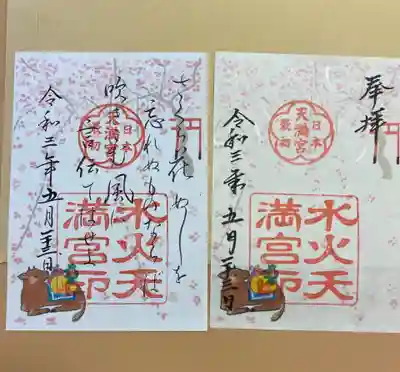 さくら花ぬしを
忘れぬものならは
吹き来む風に
言伝てはせよ
令和三年五月二十三日
日本
天満宮
最初
水火天
満宮印
奉拝
日本
天満宮
最初
水火天
満宮印
令和三年五月二十三日